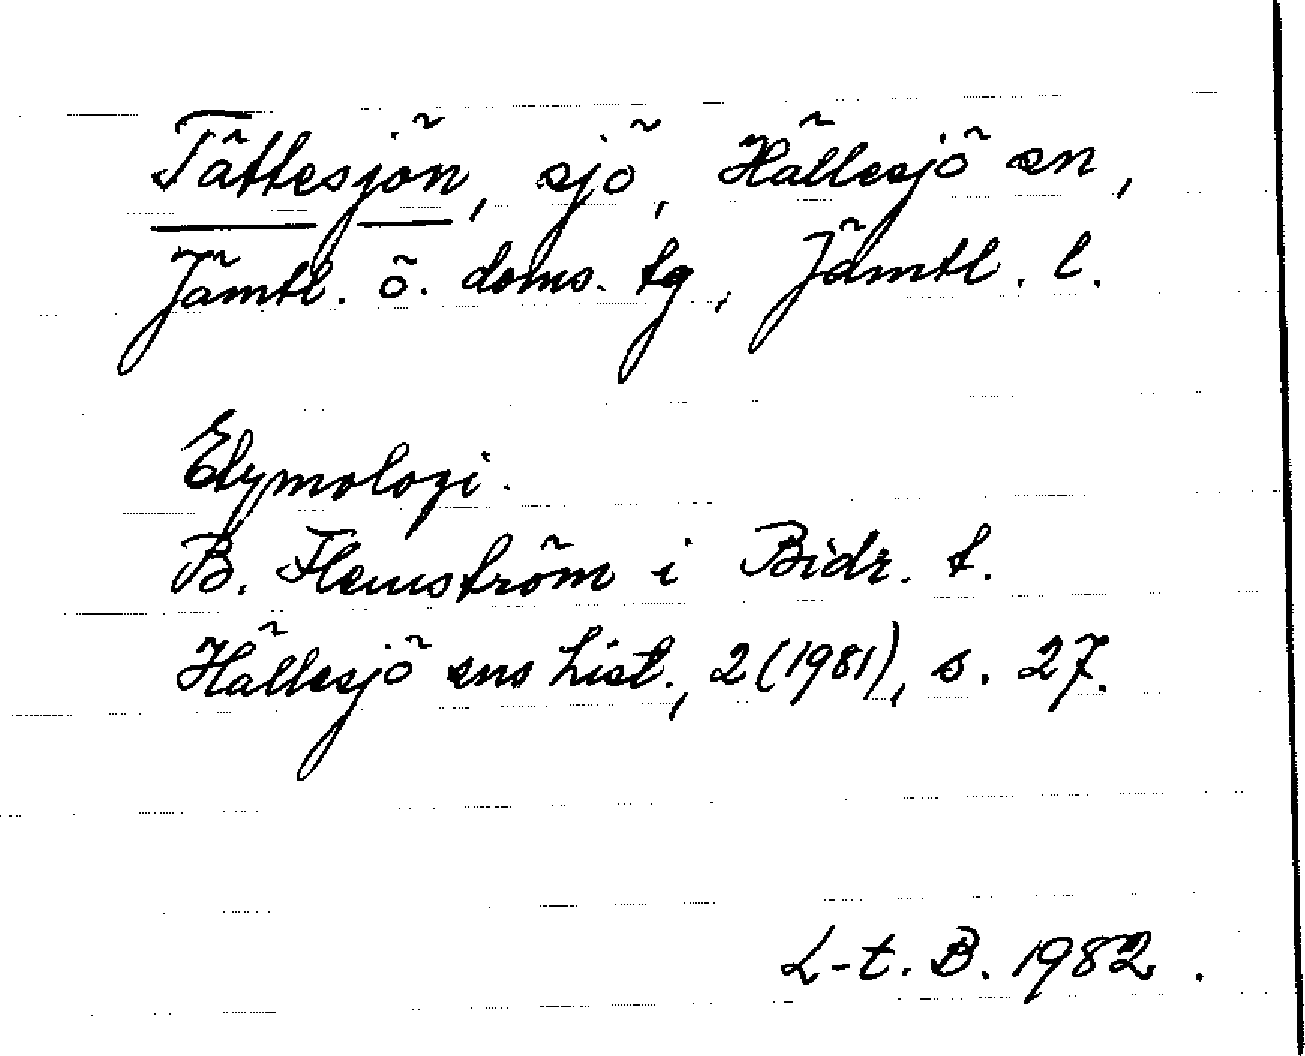 Tättesjön, sjö, Hällesjö sn,
Jämtl. ö. doms. tg, Jämtl. l.
Etymologi.
B. Flemström i Bidr. t.
Hällesjö sns hist., 2 (1981), s. 27.
L-t. B. 1982.